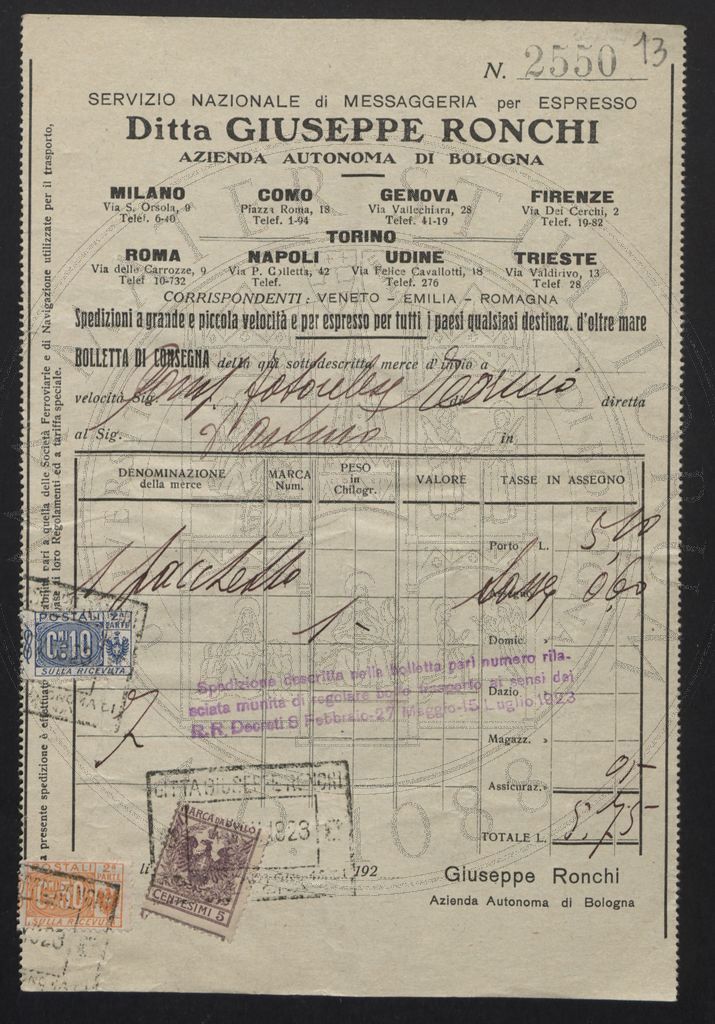 13
N. 2550
SERVIZIO NAZIONALE di MESSAGGERIA per ESPRESSO
Ditta GIUSEPPE RONCHI
AZIENDA AUTONOMA DI BOLOGNA
MILANO COMO GENOVA FIRENZE
Via S. Orsola, 9 Piazza Roma, 18 Via Vallechiara, 28 Via Dei Cerchi, 2
Telef. 6-40 Telef. 1-94 Telef. 41-19 Telef. 19-82
TORINO
ROMA NAPOLI UDINE TRIESTE
Via delle Carrozze, 9 Via P. Colletta, 42 Via Felice Cavallotti, 18 Via Valdirivo, 13
Telef 10-732 Telef. Telef. 276 Telef 28
CORRISPONDENTI: VENETO - EMILIA - ROMAGNA
Spedizioni a grande e piccola velocità e per espresso per tutti i paesi qualsiasi destinaz. d'oltre mare
BOLLETTA DI CONSEGNA della qui sottodescritta merce d'invio a
velocità Sig. diretta
al Sig. in
DENOMINAZIONE della merce MARCA Num. PESO in Chilogr. VALORE TASSE IN ASSEGNO
Porto L. 5,00
1 pacchetto 1- Tassa 0,60
Domic. »
Dazio
Magazz. »
Assicuraz. »
TOTALE L. 5.75
Spedizione descritta nella bolletta pari numero rila-
sciata munita di regolare bollo trasporto ai sensi dei
R.R. Decreti 8 Febbraio-27 Maggio-15 Luglio 1923
DITTA GIUSEPPE RONCHI
1923
MARCA DA BOLLO
CENTESIMI 5
li 192
Giuseppe Ronchi
Azienda Autonoma di Bologna
POSTALI 2ª PARTE
CMI 10
SULLA RICEVUTA
POSTALI 2ª PARTE
SULLA RICEVUTA
1923